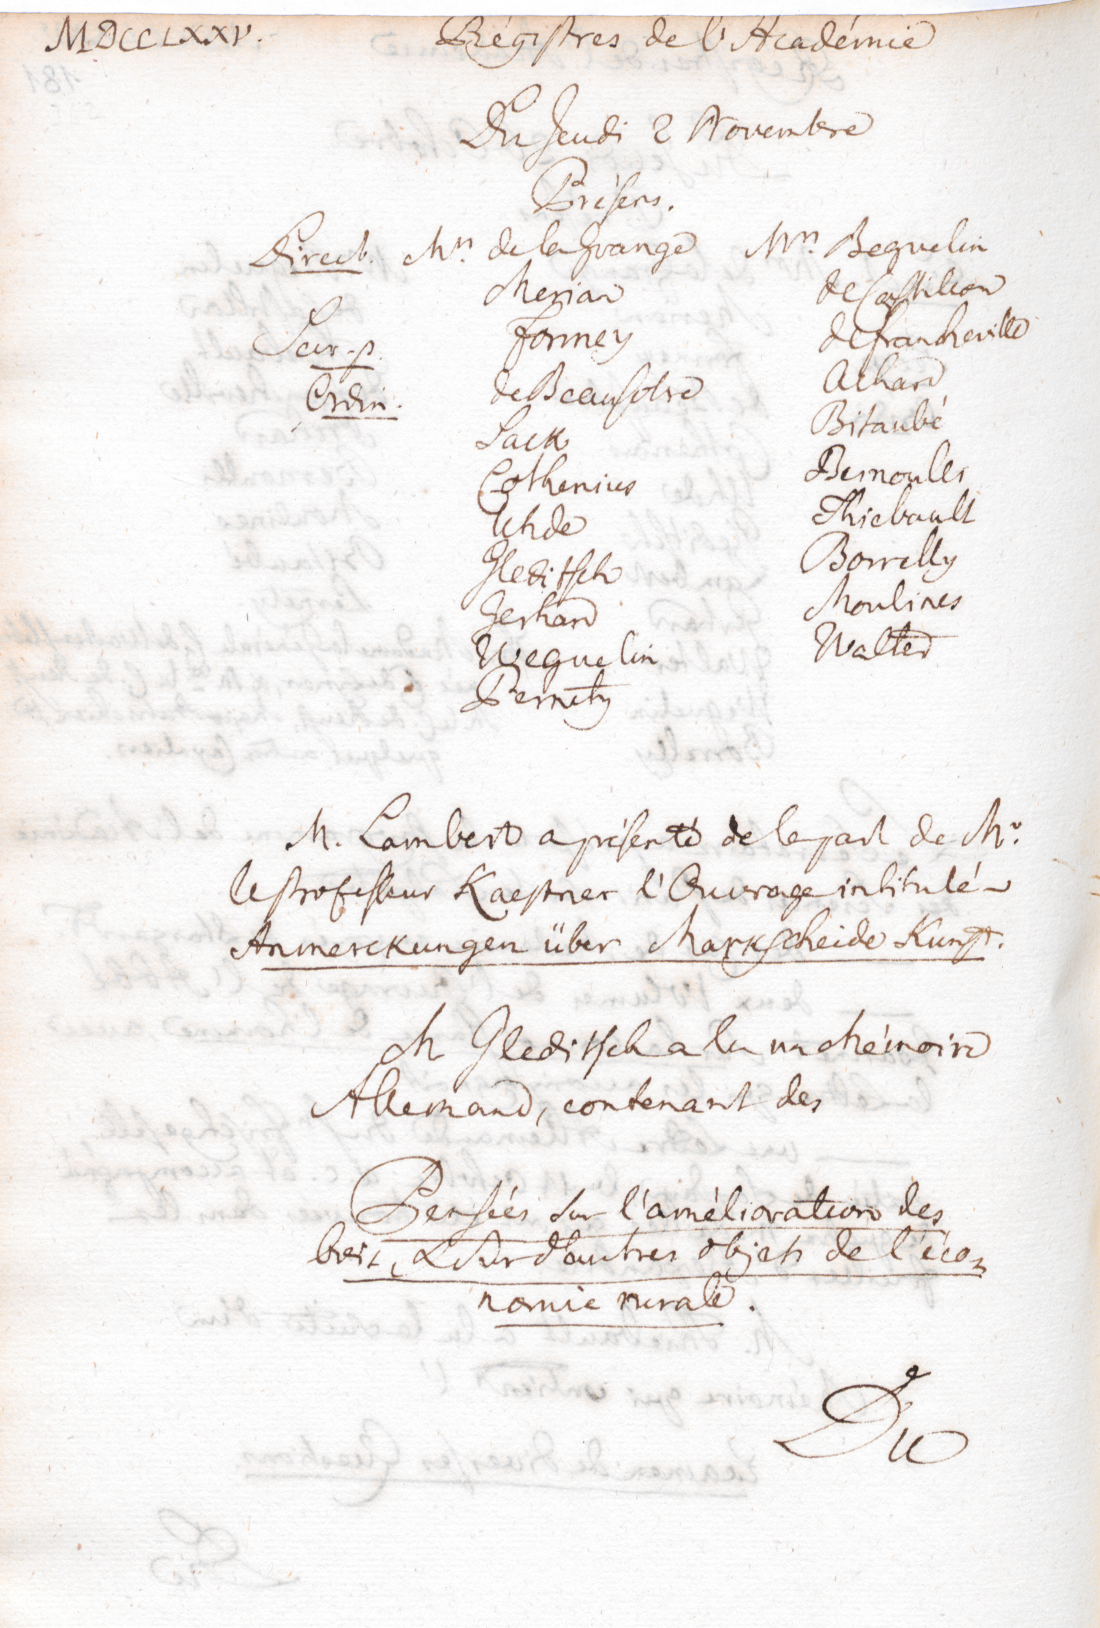 MDCCLXXV. Régistres de l'Académie
Du Jeudi 2 Novembre
Présens.
Direct. Mrs. de la Grange
Merian
Secr. p. Formey
Ordin. de Beausobre
Sack
Cothenius
Uhde
Gleditsch
Gerhard
Weguelin
Pernety
Mrs. Beguelin
de Castillon
de Francheville
Achard
Bitaubé
Bernoulli
Thiebault
Borrelly
Moulines
Walter
M. Lambert a présenté de la part de Mr.
le Professeur Kaestner l'Ouvrage intitulé
Anmerckungen über Markscheide Kunst.
M Gleditsch a lu un Mémoire
Allemand, contenant des
Pensées sur l'amélioration des
bois, & sur d'autres objets de l'éco=
nomie rurale.
Du